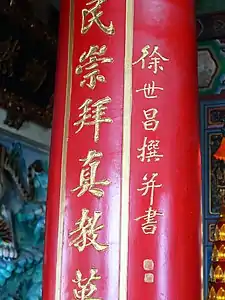 民崇拜真教萬
徐世昌撰并書